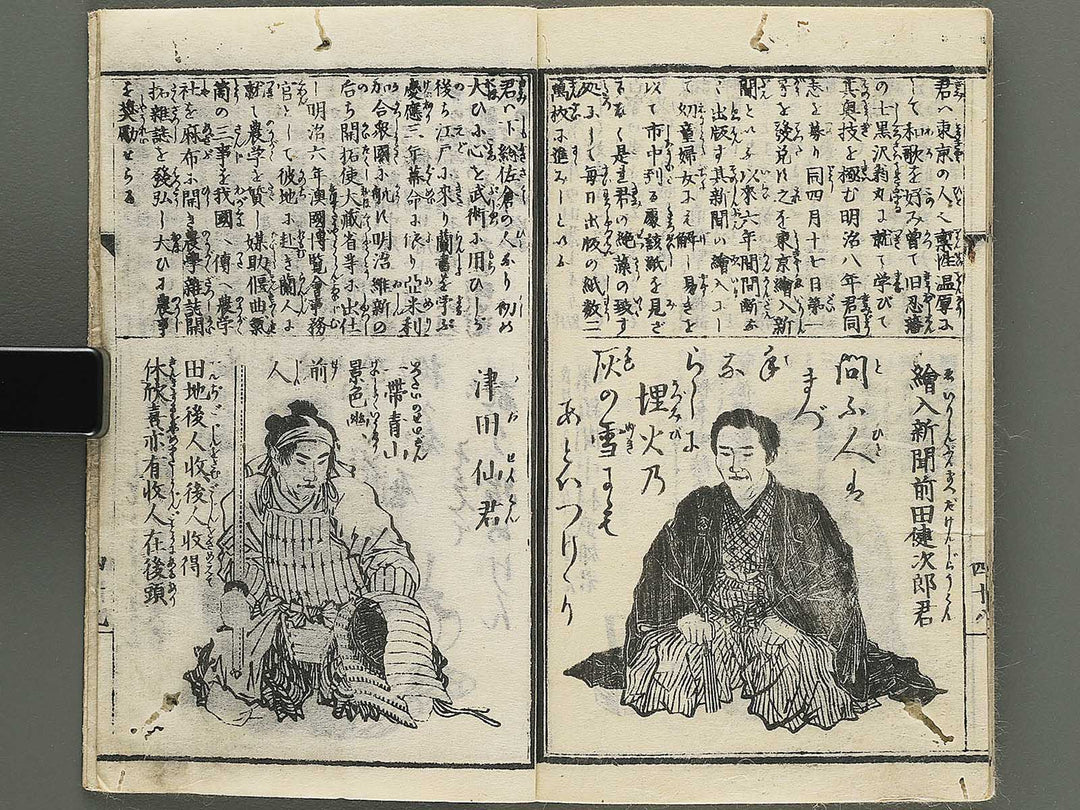 君ハ東京の人人禀性温厚に
して和歌を好み曽て旧忍藩
の士黒沢翁丸に就て学びて
其奥技を極む明治八年君同
志と募り同四月十七日第一
号を發兌に之を東京繪入新
聞といふ以來六年間間断な
く出版す其新聞の繪入にし
て幼童婦女に解し易きを
以て市中到る處該紙を見ざ
るなく是君の絶藻の致す
処にして毎日出版の紙数二
萬枚に進みしといふ
繪入新聞前田健次郎君
問ふ人も
まづ
手
な
らしに
埋火乃
灰の雪にも
あとハつけけり
四十八
君ハ下総佐倉の人なり初め
大ひに心を武術に用ひしが
後ち江戸に來り蘭書を学ぶ
慶應三年幕命に依り亞米利
加合衆國に航し明治維新の
后ち開拓使大蔵省等に出仕
し明治六年澳國博覧會事務
官として彼地に赴き蘭人に
就て農学を質し媒助偃曲氣
筒の三事を我國へ傳へ農学
社を麻布に開き農學雜誌開
拓雜誌を發弘し大ひに農事
を奨勵せらる
津田仙君
一帯青山
景色幽
前
人
田地後人收後人收得
休歓喜亦有收人在後頭
四十九